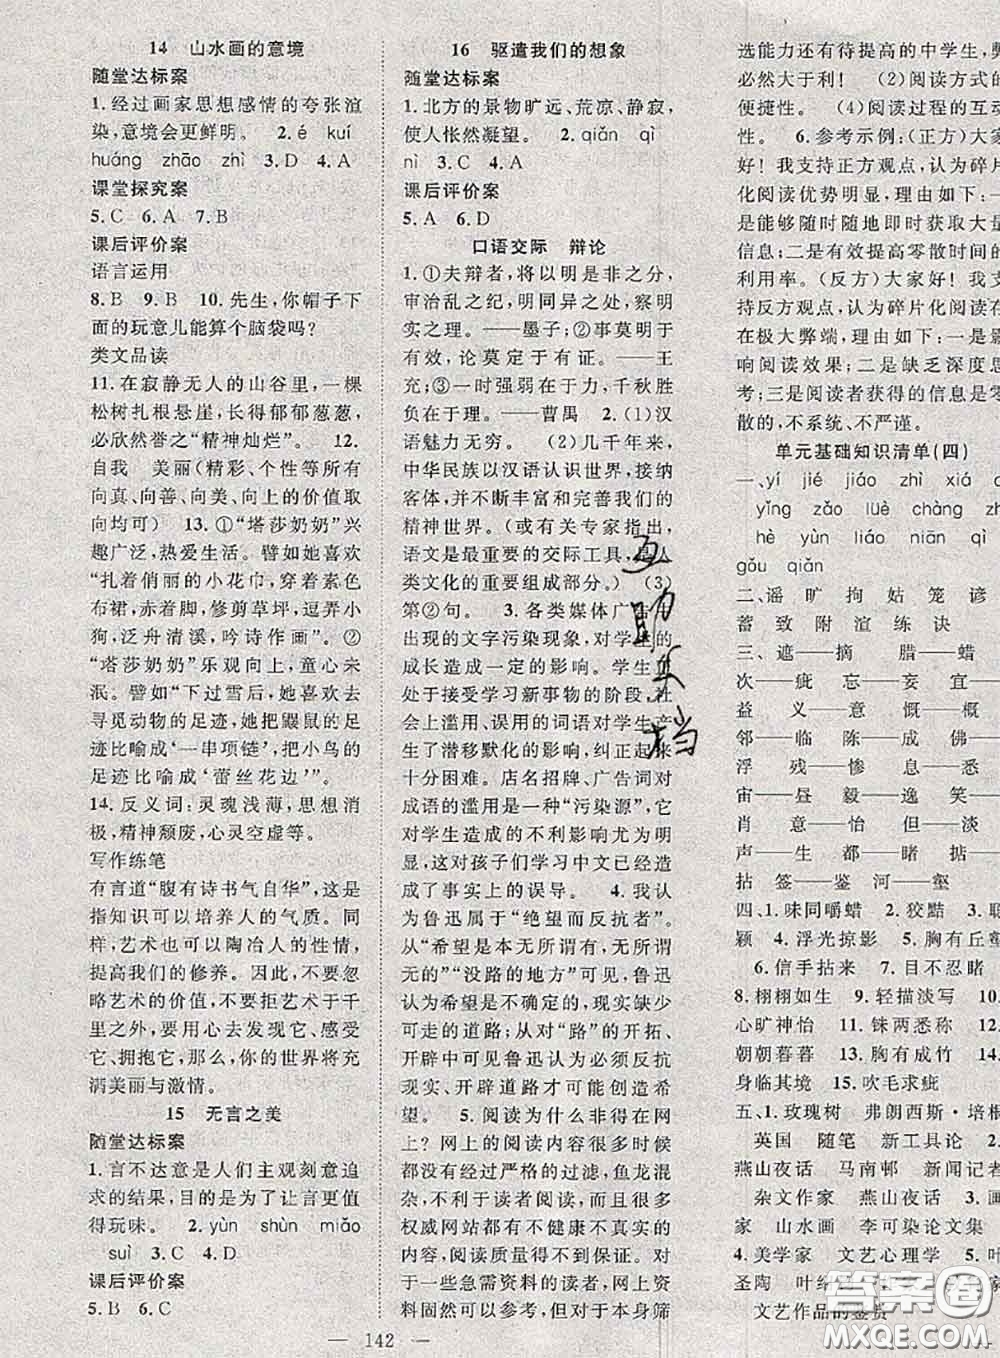 14 山水画的意境
随堂达标案
1. 经过画家思想感情的夸张渲
染,意境会更鲜明。 2. é kuí
huáng zhāo zhì 3. D 4. A
课堂探究案
5. C 6. A 7. B
课后评价案
语言运用
8. B 9. B 10. 先生,你帽子下
面的玩意儿能算个脑袋吗?
类文品读
11. 在寂静无人的山谷里,一棵
松树扎根悬崖,长得郁郁葱葱,
必欣然誉之“精神灿烂”。 12.
自我 美丽(精彩、个性等所有
向真、向善、向美、向上的价值取
向均可) 13. ①“塔莎奶奶”兴
趣广泛,热爱生活。譬如她喜欢
“扎着俏丽的小花巾,穿着碎花
布裙,赤着脚,修剪草坪,逗弄小
狗,泛舟清溪,吟诗作画”。②
“塔莎奶奶”乐观向上,童心未
泯。譬如“下过雪后,她喜欢去
寻觅动物的足迹,她把鼹鼠的足
迹比喻成‘一串项链’,把小鸟的
足迹比喻成‘蕾丝花边’”。
14. 反义词:灵魂浅薄,思想消
极,精神颓废,心灵空虚等。
写作练笔
有言道“腹有诗书气自华”,这是
指知识可以培养人的气质。同
样,艺术也可以陶冶人的性情,
提高我们的修养。因此,不要忽
略艺术的价值,不要让艺术于千
里之外,要用心去发现它、感受
它、拥抱它,那么,你的世界将充
满美丽与激情。
15 无言之美
随堂达标案
1. 言不达意是人们主观刻意追
求的结果,目的是为了让言更值
得玩味。 2. yùn shùn miǎo
suì 3. C 4. D
课后评价案
5. B 6. C
16 驱遣我们的想象
随堂达标案
1. 北方的景物旷远、荒凉、静寂,
使人怅然凝望。 2. qiǎn qì
nì 3. C 4. A
课后评价案
5. A 6. D
口语交际 辩论
1. ①夫辩者,将以明是非之分,
审治乱之纪,明同异之处,察明
实之理。——墨子;②事莫明于
有效,论莫定于有证。——王
充;③一时强弱在于力,千秋胜
负在于理。——曹禺 2. (1)汉
语魅力无穷。 (2)几千年来,
中华民族以汉语认识世界,接纳
客体,并不断丰富和完善我们的
精神世界。(或有关专家指出,
语文是最重要的交际工具,是人
类文化的重要组成部分。) (3)
第②句。 3. 各类媒体广告
出现的文字污染现象,对学生的
成长造成一定的影响。学生正
处于接受学习新事物的阶段,社
会上滥用、误用的词语对学生产
生了潜移默化的影响,纠正起来
十分困难。店名招牌、广告词对
成语的滥用是一种“污染源”,它
对学生造成的不利影响尤为明
显,这对孩子们学习中文已经造
成了事实上的误导。 4. 我认
为鲁迅属于“绝望而反抗者”。
从“希望是本无所谓有,无所谓
无的”“没路的地方”可见,鲁迅
认为希望是不确定的,现实缺少
可走的道路;从对“路”的开拓、
开辟中可见鲁迅认为必须反抗
现实、开辟道路才可能会有希
望。 5. 阅读为什么非得在网
上?网上的阅读内容很多时候
都没有经过严格的过滤,鱼龙混
杂,不利于读者阅读,即使很多
权威网站都有不健康不真实的
内容,阅读质量得不到保证。对
于一些急需资料的读者,网上资
料固然可以参考,但对于本身筛
选能力还有待提高的中学生,弊
必然大于利! (2)阅读方式的
便捷性。 (4)阅读过程的互动
性。 6. 参考示例:(正方)大家
好!我支持正方观点,认为碎片
化阅读优势明显,理由如下:一
是能够随时随地即时获取大量
信息;二是有效提高零散时间的
利用率。(反方)大家好!我支
持反方观点,认为碎片化阅读存
在极大弊端,理由如下:一是影
响阅读效果;二是缺乏深度思
考;三是读者获得的信息是零
散的,不系统、不严谨。
单元基础知识清单(四)
一、yí jié jiáo zhì xiá
yǐng zǎo lüè chàng zh
hè yùn liáo niàn qì
gǒu qiǎn
二、遥 旷 拘 姑 笼 谚
蓄 致 附 渲 练 诀
三、遮——摘 腊——蜡
次——疵 忘——妄 宜——
益 义——意 慨——概
邻——临 陈——成 佛——
浮 残——惨 斋——悉
宙——昼 毅——逸 笑——
肖 意——怡 但——淡
声——生 都——睹 掂——
拈 签——鉴 河——壑
四、1. 味同嚼蜡 2. 狡黠 3. 联
颖 4. 浮光掠影 5. 胸有丘壑
6. 信手拈来 7. 目不忍睹
8. 栩栩如生 9. 轻描淡写 10.
心旷神怡 11. 铢两悉称 12.
朝朝暮暮 13. 胸有成竹 14.
身临其境 15. 吹毛求疵
五、1. 玫瑰树 弗朗西斯·培根
英国 随笔 新工具论 2.
燕山夜话 马南邨 新闻记者
杂文作家 燕山夜话 3. 画
家 山水画 李可染论文集
4. 美学家 文艺心理学 5. 叶
圣陶 叶绍
文艺作品的鉴赏
互助文档
答案圈
MXQE.COM
— 142 —